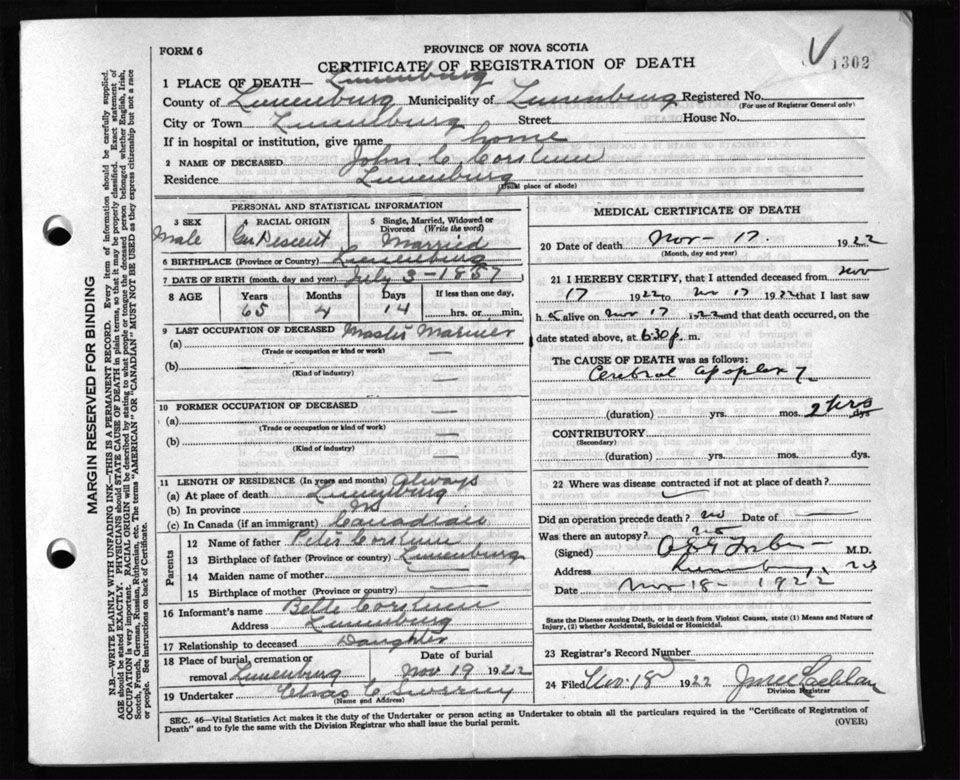 FORM 6
PROVINCE OF NOVA SCOTIA
CERTIFICATE OF REGISTRATION OF DEATH
1302
1 PLACE OF DEATH— Lunenburg
County of Lunenburg Municipality of Lunenburg Registered No.
(For use of Registrar General only)
City or Town Lunenburg Street House No.
If in hospital or institution, give name home
2 NAME OF DECEASED John C Corkum
Residence Lunenburg
(Usual place of abode)
PERSONAL AND STATISTICAL INFORMATION
3 SEX Male
4 RACIAL ORIGIN Descent
5 Single, Married, Widowed or Divorced (Write the word) Married
6 BIRTHPLACE (Province or Country) Lunenburg
7 DATE OF BIRTH (month, day and year) July 3-1857
8 AGE Years 65 Months 4 Days 14 If less than one day, hrs. or min.
9 LAST OCCUPATION OF DECEASED Master Mariner
(a)
(Trade or occupation or kind or work)
(b)
(Kind of industry)
10 FORMER OCCUPATION OF DECEASED
(a)
(Trade or occupation or kind or work)
(b)
(Kind of industry)
11 LENGTH OF RESIDENCE (In years and months) Always
(a) At place of death Lunenburg
(b) In province
(c) In Canada (if an immigrant) Canadian
Parents
12 Name of father Peter Corkum
13 Birthplace of father (Province or country) Lunenburg
14 Maiden name of mother
15 Birthplace of mother (Province or country)
16 Informant's name Belle Corkum
Address Lunenburg
17 Relationship to deceased Daughter
18 Place of burial, cremation or removal Lunenburg Date of burial Nov 19 1922
19 Undertaker Chas C Sweeny
(Name and Address)
MEDICAL CERTIFICATE OF DEATH
20 Date of death Nov- 17. 1922
(Month, day and year)
21 I HEREBY CERTIFY, that I attended deceased from Nov
17 1922 to Nov 17 1922 that I last saw
h alive on Nov 17 1922 and that death occurred, on
date stated above, at 6:30 p. m.
The CAUSE OF DEATH was as follows:
Cerebral apoplexy
(duration) yrs. mos. 2 hrs dys.
CONTRIBUTORY
(Secondary)
(duration) yrs. mos. dys.
22 Where was disease contracted if not at place of death?
Did an operation precede death? no Date of
Was there an autopsy? no
(Signed) M.D.
Address Lunenburg, N.S
Date Nov-18- 1922
State the Disease causing Death, or in death from Violent Causes, state (1) Means and Nature of Injury, (2) whether Accidental, Suicidal or Homicidal.
23 Registrar's Record Number
24 Filed Nov 18 1922
Division Registrar
SEC. 46—Vital Statistics Act makes it the duty of the Undertaker or person acting as Undertaker to obtain all the particulars required in the "Certificate of Registration of
Death" and to fyle the same with the Division Registrar who shall issue the burial permit.
(OVER)
MARGIN RESERVED FOR BINDING
N.B.—WRITE PLAINLY WITH UNFADING INK—THIS IS A PERMANENT RECORD. Every item of information should be carefully supplied.
AGE should be stated EXACTLY. PHYSICIANS should STATE CAUSE OF DEATH in plain terms, so that it may be properly classified. Exact statement of
OCCUPATION is very important. RACIAL ORIGIN will be described by stating to what people or tongue the deceased person belonged whether English, Irish,
Scotch, French, German, Russian, Ruthenian, etc. The terms "AMERICAN" OR "CANADIAN" MUST NOT BE USED as they express citizenship but not a race
or people. See instructions on back of Certificate.